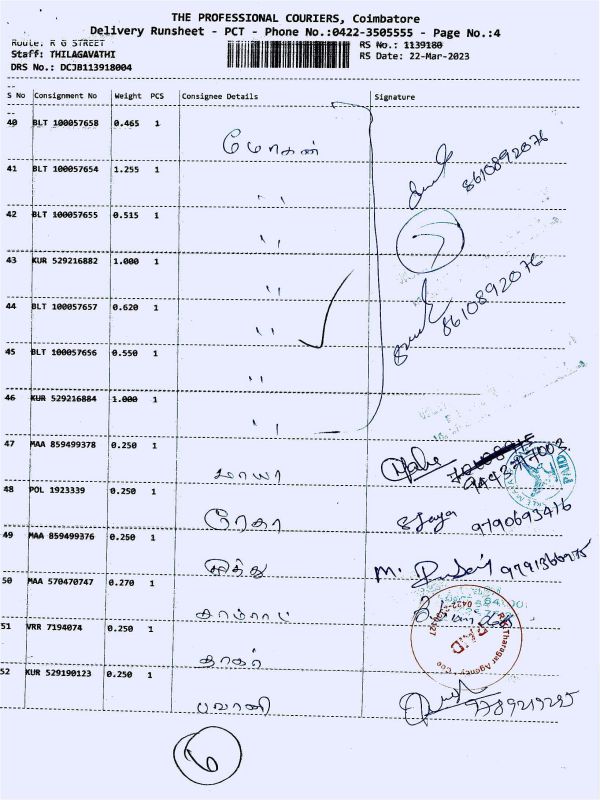 THE PROFESSIONAL COURIERS, Coimbatore
Delivery Runsheet - PCT - Phone No.:0422-3505555 - Page No.:4
Route: R G STREET
RS No.: 1139180
Staff: THILAGAVATHI
RS Date: 22-Mar-2023
DRS No.: DCJB113918004
S No Consignment No Weight PCS Consignee Details Signature
40 BLT 100057658 0.465 1 மோகன்
41 BLT 100057654 1.255 1 " 8610892076
42 BLT 100057655 0.515 1 "
7
43 KUR 529216882 1.000 1 "
44 BLT 100057657 0.620 1 " 8610892076
45 BLT 100057656 0.550 1 "
46 KUR 529216884 1.000 1 "
47 MAA 859499378 0.250 1 மாயா
48 POL 1923339 0.250 1 ரேகா S Jaya 9790693416
49 MAA 859499376 0.250 1 முத்து M.
50 MAA 570470747 0.270 1 காமராட்
51 VRR 7194074 0.250 1
52 KUR 529190123 0.250 1 பவானி
6